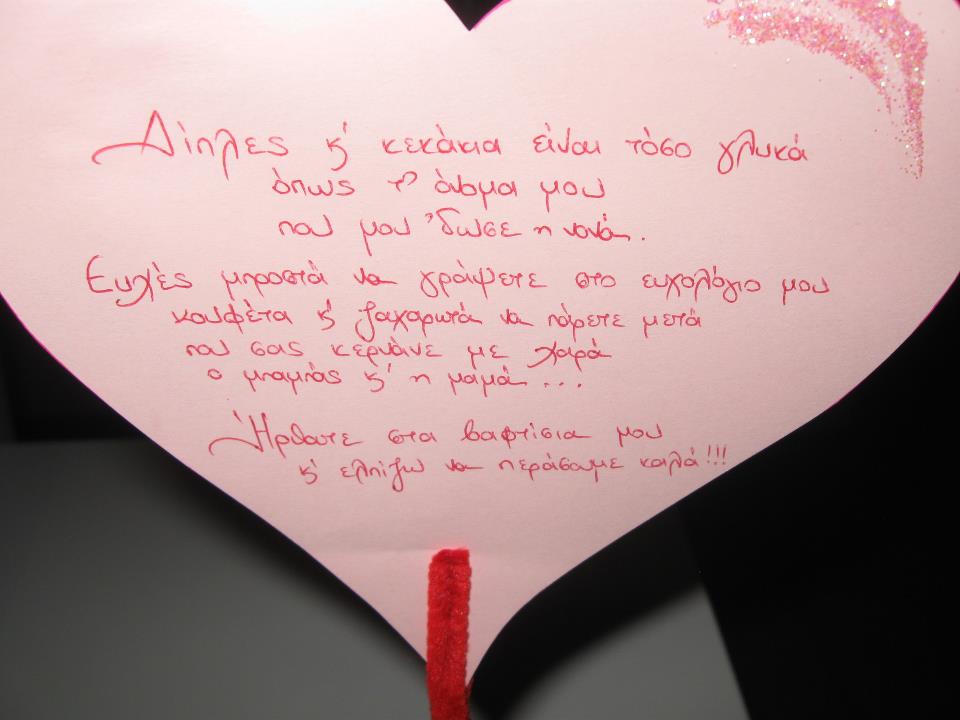 Δίπλες κ' κεκάκια είναι τόσο γλυκά
όπως τ' όνομα μου
που μου 'δωσε η νονά.
Ευχές μπροστά να γράψετε στο ευχολόγιο μου
κουφέτα κ' ζαχαρωτά να πάρετε μετά
που σας κερνάνε με χαρά
ο μπαμπάς κ' η μαμά...
Ήρθατε στα βαφτίσια μου
κ' ελπίζω να περάσαμε καλά!!!